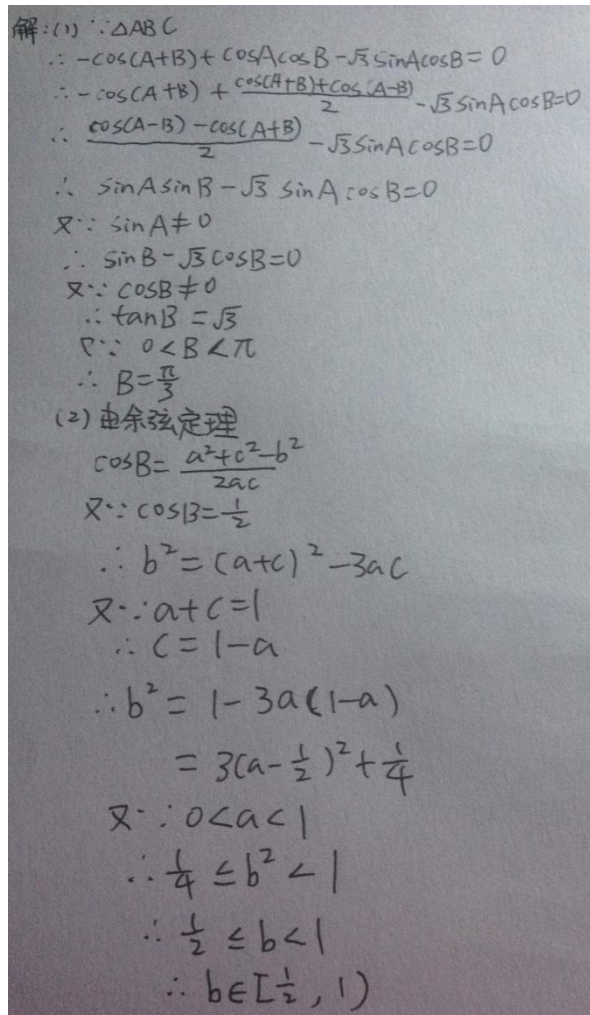 解:(1) ∵△ABC
∴ -cos(A+B)+cosAcosB-√3sinAcosB=0
∴ -cos(A+B)+\frac{cos(A+B)+cos(A-B)}{2}-√3sinAcosB=0
∴ \frac{cos(A-B)-cos(A+B)}{2}-√3sinAcosB=0
∴ sinAsinB-√3sinAcosB=0
又∵ sinA≠0
∴ sinB-√3cosB=0
又∵ cosB≠0
∴ tanB=√3
又∵ 0<B<π
∴ B=\frac{π}{3}
(2) 由余弦定理
cosB=\frac{a²+c²-b²}{2ac}
又∵ cosB=\frac{1}{2}
∴ b²=(a+c)²-3ac
又∵ a+c=1
∴ c=1-a
∴ b²=1-3a(1-a)
=3(a-\frac{1}{2})²+\frac{1}{4}
又∵ 0<a<1
∴ \frac{1}{4}≤b²<1
∴ \frac{1}{2}≤b<1
∴ b∈[\frac{1}{2},1)